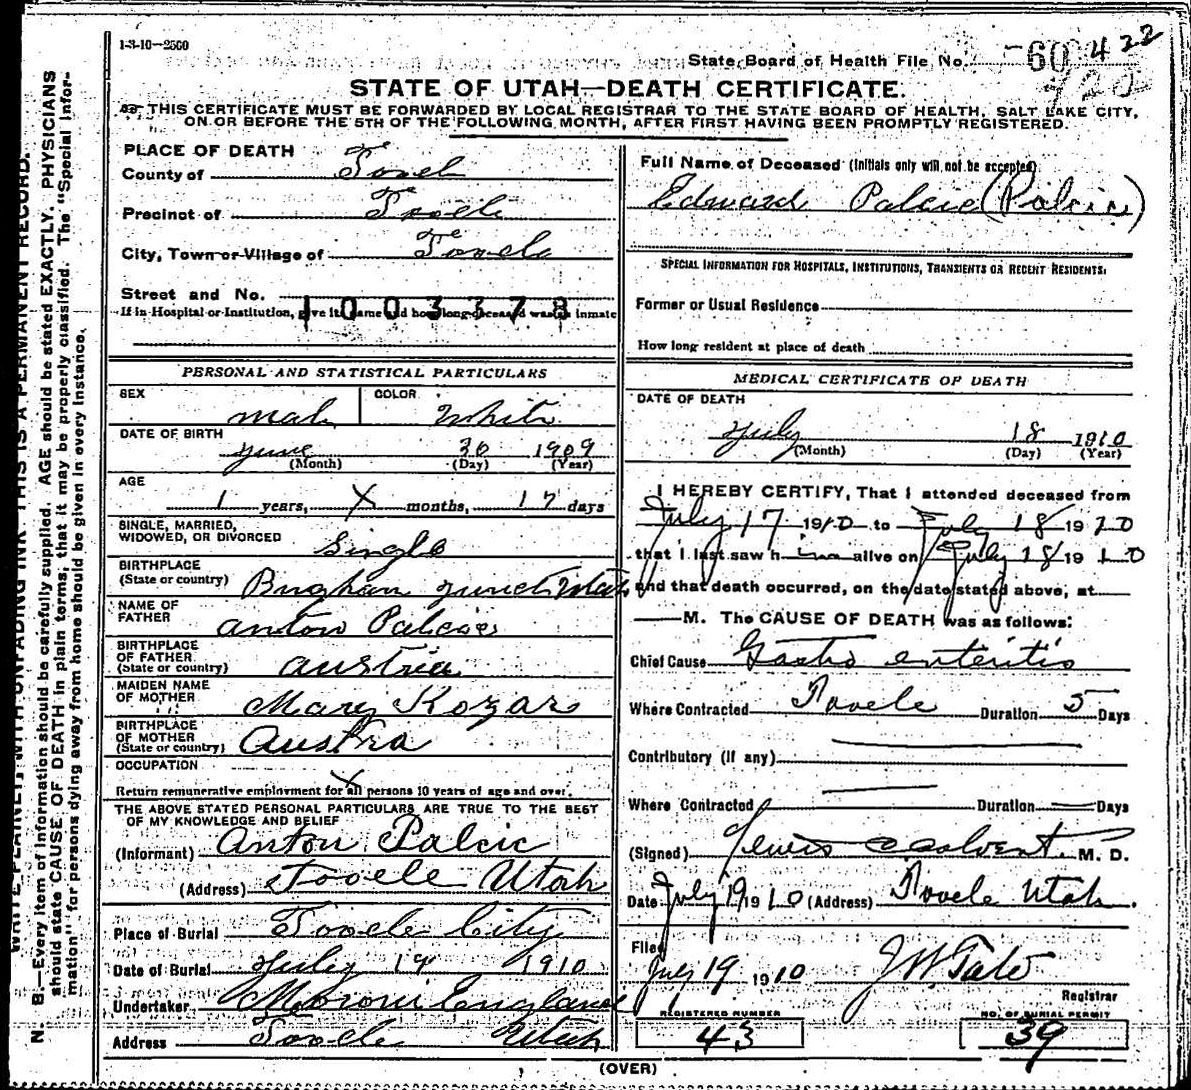 1-3-10—2500
State Board of Health File No. 60 422
STATE OF UTAH—DEATH CERTIFICATE.
THIS CERTIFICATE MUST BE FORWARDED BY LOCAL REGISTRAR TO THE STATE BOARD OF HEALTH, SALT LAKE CITY,
ON OR BEFORE THE 5TH OF THE FOLLOWING MONTH, AFTER FIRST HAVING BEEN PROMPTLY REGISTERED.
PLACE OF DEATH
County of Tooele
Precinct of Tooele
City, Town or Village of Tooele
Street and No.
1003378
If in Hospital or Institution, give its name and how long deceased was an inmate
PERSONAL AND STATISTICAL PARTICULARS
SEX male COLOR White
DATE OF BIRTH
June 30 1909
(Month) (Day) (Year)
AGE
1 years, X months, 17 days
SINGLE, MARRIED,
WIDOWED, OR DIVORCED Single
BIRTHPLACE
(State or country) Bingham Junct Utah
NAME OF
FATHER Anton Palcic
BIRTHPLACE
OF FATHER
(State or country) Austria
MAIDEN NAME
OF MOTHER Mary Kozar
BIRTHPLACE
OF MOTHER
(State or country) Austria
OCCUPATION
X
Return remunerative employment for all persons 10 years of age and over.
THE ABOVE STATED PERSONAL PARTICULARS ARE TRUE TO THE BEST
OF MY KNOWLEDGE AND BELIEF
(Informant) Anton Palcic
(Address) Tooele Utah
Place of Burial Tooele City
Date of Burial July 19 1910
Undertaker Moroni England
Address Tooele Utah
Full Name of Deceased (Initials only will not be accepted)
Edward Palcic (Palcic)
SPECIAL INFORMATION FOR HOSPITALS, INSTITUTIONS, TRANSIENTS OR RECENT RESIDENTS:
Former or Usual Residence
How long resident at place of death
MEDICAL CERTIFICATE OF DEATH
DATE OF DEATH
July 18 1910
(Month) (Day) (Year)
I HEREBY CERTIFY, That I attended deceased from
July 17 1910 to July 18 1910
that I last saw him alive on July 18 1910
and that death occurred, on the date stated above, at
M. The CAUSE OF DEATH was as follows:
Chief Cause Gastro enteritis
Where Contracted Tooele Duration 5 Days
Contributory (if any)
Where Contracted Duration Days
(Signed) M. D.
Date July 19 1910 (Address) Tooele Utah.
Filed
July 19 1910 J W Tate
Registrar
REGISTERED NUMBER
43
NO. OF BURIAL PERMIT
39
(OVER)
WRITE PLAINLY, WITH UNFADING INK. THIS IS A PERMANENT RECORD.
N. B.—Every item of information should be carefully supplied. AGE should be stated EXACTLY. PHYSICIANS
should state CAUSE OF DEATH in plain terms, that it may be properly classified. The "Special Infor-
mation" for persons dying away from home should be given in every instance.